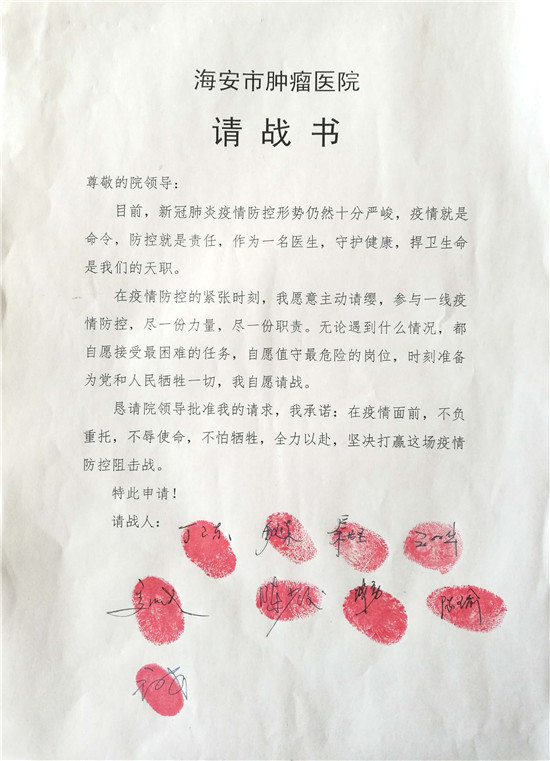 海安市肿瘤医院
请战书
尊敬的院领导：
目前，新冠肺炎疫情防控形势仍然十分严峻，疫情就是
命令，防控就是责任，作为一名医生，守护健康，捍卫生命
是我们的天职。
在疫情防控的紧张时刻，我愿意主动请缨，参与一线疫
情防控，尽一份力量，尽一份职责。无论遇到什么情况，都
自愿接受最困难的任务，自愿值守最危险的岗位，时刻准备
为党和人民牺牲一切，我自愿请战。
恳请院领导批准我的请求，我承诺：在疫情面前，不负
重托，不辱使命，不怕牺牲，全力以赴，坚决打赢这场疫情
防控阻击战。
特此申请！
请战人：